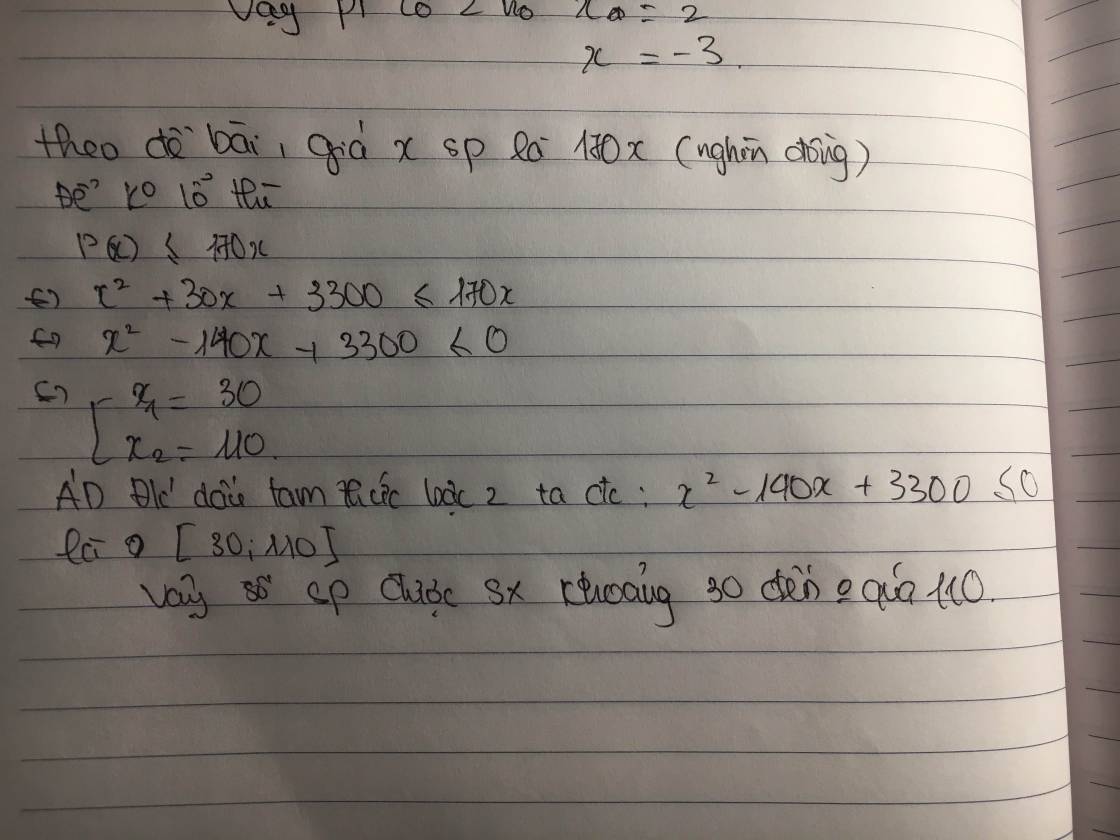 Vậy pt có 2 no x = 2
x = -3.
theo đề bài, giá x sp là 170x (nghìn đồng)
Để ko lỗ thì
P(x) ≤ 170x
⇔ x² + 30x + 3300 ≤ 170x
⇔ x² - 140x + 3300 ≤ 0
⇔ [ x₁ = 30
x₂ = 110.
ÁD ĐL dấu tam thức bậc 2 ta đc : x² - 140x + 3300 ≤ 0
là [30; 110]
Vậy số sp được sx khoảng 30 đến quá 110.